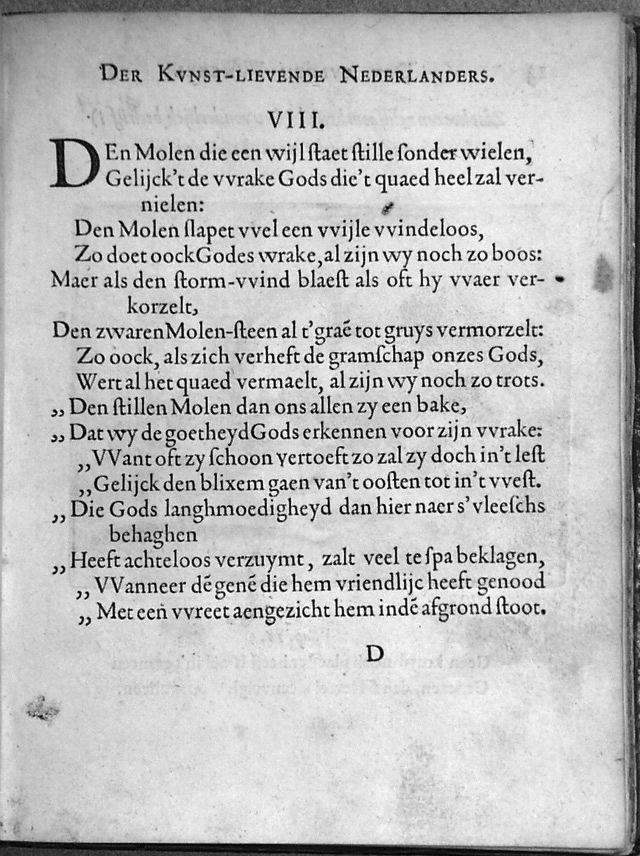 DER KVNST-LIEVENDE NEDERLANDERS.
VIII.
DEn Molen die een wijl ſtaet ſtille ſonder wielen,
Gelijck't de vvrake Gods die't quaed heel zal ver-
nielen:
Den Molen ſlapet vvel een vvijle vvindeloos,
Zo doet oock Godes wrake, al zijn wy noch zo boos:
Maer als den ſtorm-vvind blaeſt als oft hy vvaer ver-
korzelt,
Den zwaren Molen-ſteen al t'graē tot gruys vermorzelt:
Zo oock, als zich verheft de gramſchap onzes Gods,
Wert al het quaed vermaelt, al zijn wy noch zo trots.
„ Den ſtillen Molen dan ons allen zy een bake,
„ Dat wy de goetheyd Gods erkennen voor zijn vvrake:
„ VVant oft zy ſchoon vertoeft zo zal zy doch in't leſt
„ Gelijck den blixem gaen van't ooſten tot in't vveſt.
„ Die Gods langhmoedigheyd dan hier naer s'vleeſchs
behaghen
„ Heeft achteloos verzuymt, zalt veel te ſpa beklagen,
„ VVanneer dē genē die hem vriendlijc heeft genood
„ Met een vvreet aengezicht hem indē afgrond ſtoot.
D